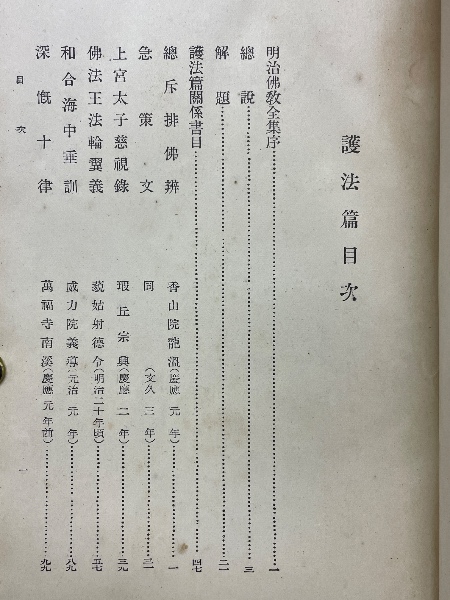 護法篇目次
明治佛敎全集序……一
總說……三
解題……二一
護法篇關係書目……四七
總斥排佛辨 香山院龍溫(慶應元年)……一
急策文 同 (文久三年)……三一
上宮太子慈視錄 瑕丘宗興(慶應二年)……三九
佛法王法輪翼義 藐姑射德令(明治二十年頃)……五七
和合海中垂訓 威力院義導(元治元年)……八九
深慨十律 萬福寺南溪(慶應元年前)……九九
目次 一